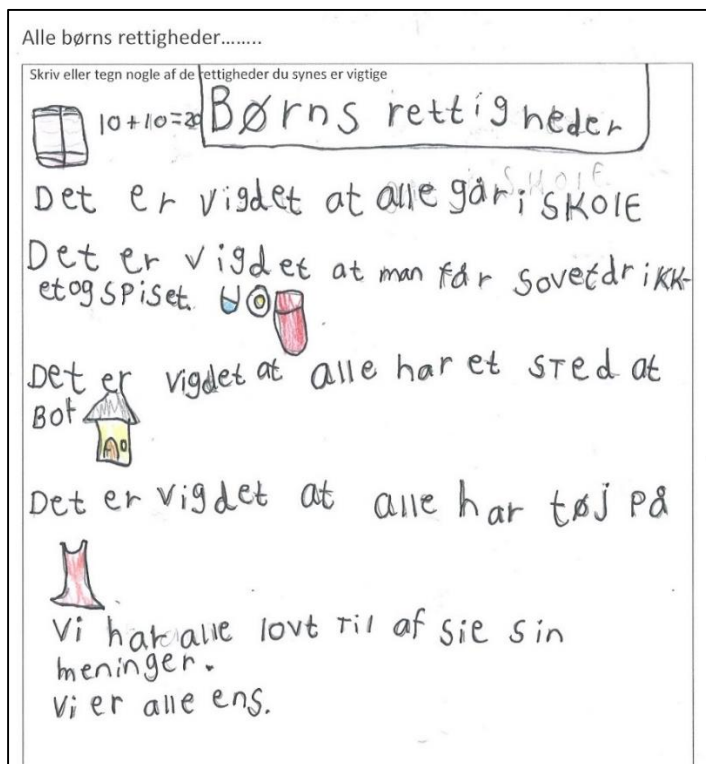 Alle børns rettigheder……..
Skriv eller tegn nogle af de rettigheder du synes er vigtige
10+10=20 Børns rettigheder
SKOIE
Det er vigdet at alle går i SKOlE
Det er vigdet at man får sovet drikk-
et og spiset.
Det er vigdet at alle har et sted at
Bot
Det er vigdet at alle har tøj på
Vi har alle lovt til af sie sin
meninger.
Vi er alle ens.